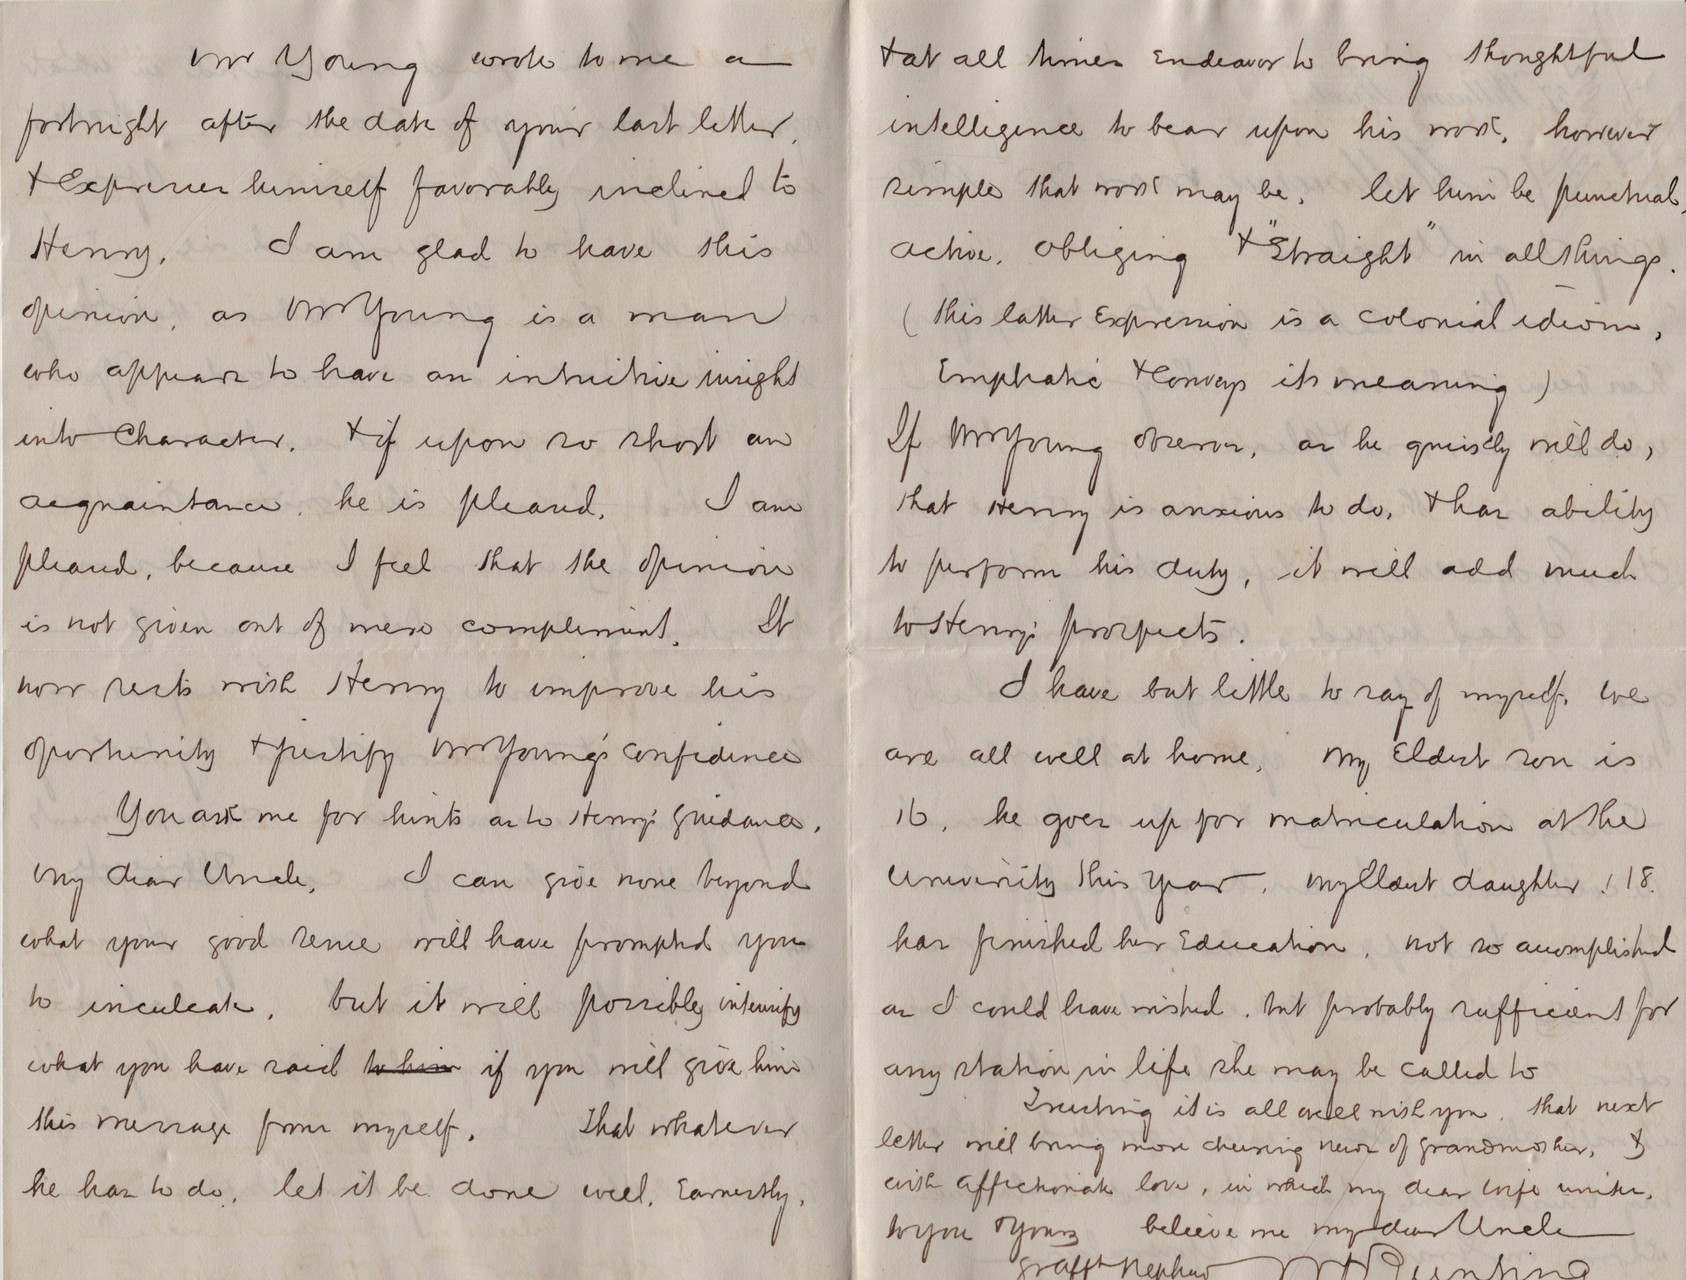 Mr Young wrote to me a
fortnight after the date of your last letter,
& Expresses himself favorably inclined to
Henry. I am glad to have this
opinion, as Mr Young is a man
who appears to have an intuitive insight
into Character. & if upon so short an
acquaintance, he is pleased, I am
pleased, because I feel that the opinion
is not given out of mere compliment. It
now rests with Henry to improve his
oportunity & justify Mr Young's confidence
You ask me for hints as to Henry's guidance,
my dear Uncle. I can give none beyond
what your good sense will have prompted you
to inculcate, but it will possibly intensify
what you have said to him if you will give him
this message from myself. That whatever
he has to do, let it be done well, Earnestly,
& at all times Endeavor to bring thoughtful
intelligence to bear upon his work, however
simple that work may be. let him be punctual,
active, obliging & "Straight" in all things.
(this latter Expression is a colonial idiom,
Emphatic & Conveys its meaning)
If Mr Young observes, as he quickly will do,
that Henry is anxious to do, & has ability
to perform his duty, it will add much
to Henry's prospects.
I have but little to say of myself, we
are all well at home, my Eldest son is
16, he goes up for matriculation at the
University this year, my Eldest daughter, 18.
has finished her Education, not so acomplished
as I could have wished, but probably sufficient for
any station in life she may be called to
Trusting it is all well with you, that next
letter will bring more cheering news of grandmother, &
with affectionate love, in which my dear wife unites,
to you & yours believe me my dear Uncle
Nephew Bunting